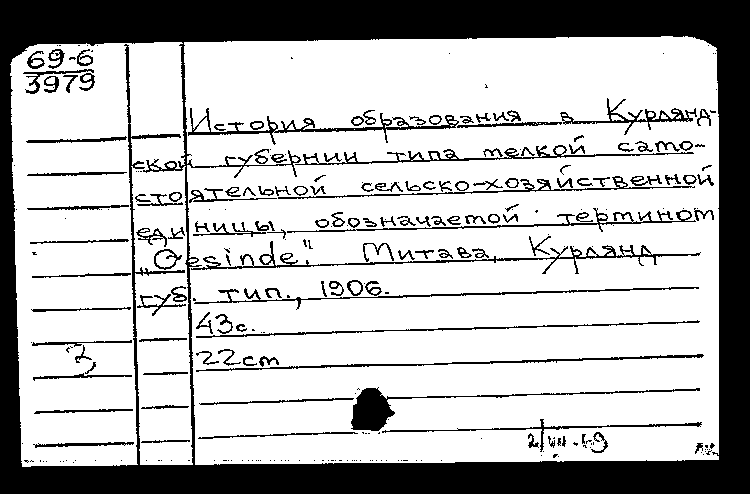 69-6
3979
История образования в Курлянд-
ской губернии типа мелкой само-
стоятельной сельско-хозяйственной
единицы, обозначаемой термином
„Gesinde." Митава, Курлянд.
губ. тип., 1906.
43с.
3 22cm
2/VII-69